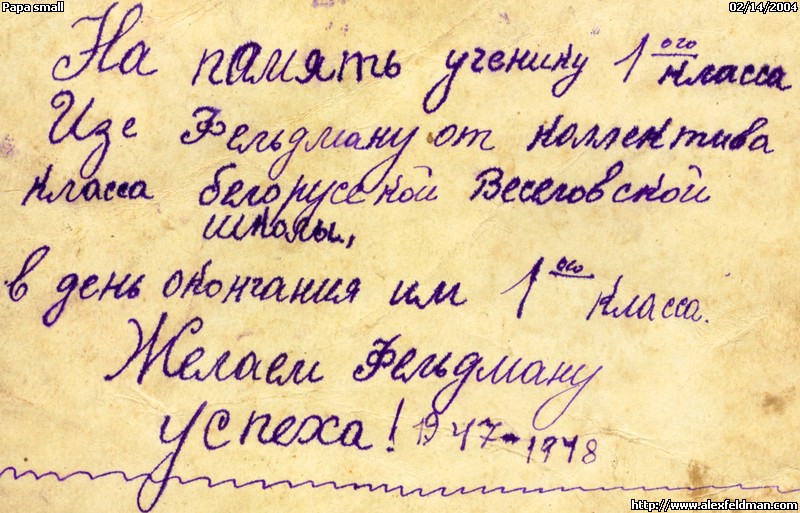 Papa small
02/14/2004
На память ученику 1ого класса
Изе Фельдману от коллектива
класса белорусской Веселовской
школы,
в день окончания им 1ого класса.
Желаем Фельдману
успеха! 1947-1948
http://www.alexfeldman.com